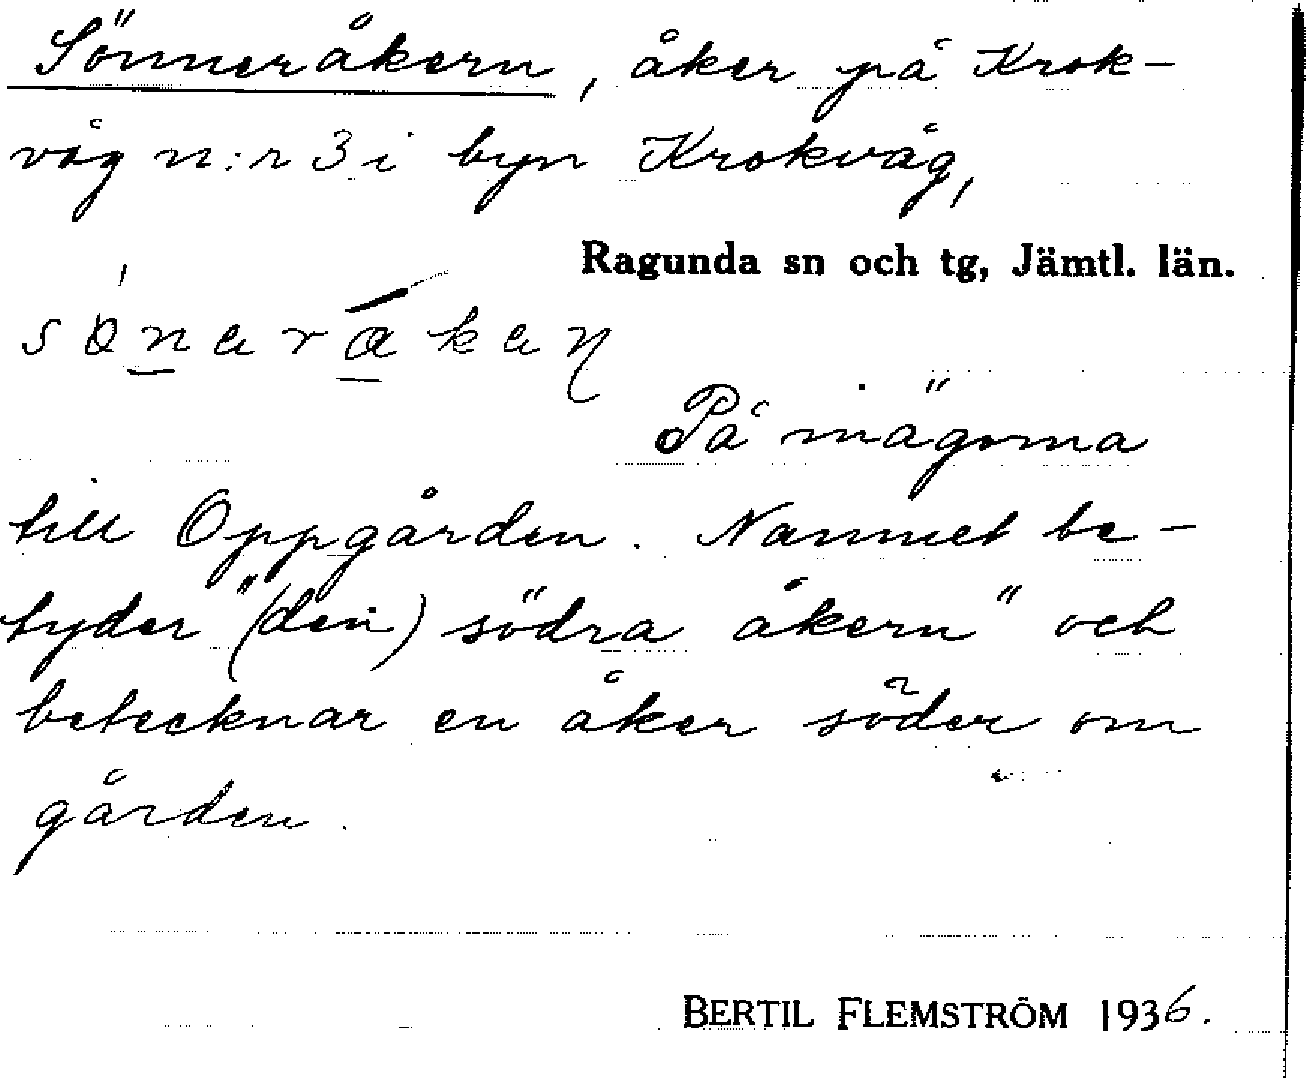 Sönneråkern, åker på Krok-
våg n:r 3 i byn Krokvåg,
Ragunda sn och tg, Jämtl. län.
På inägorna
till Oppgården. Namnet be-
tyder "(den) södra åkern" och
betecknar en åker söder om
gården.
BERTIL FLEMSTRÖM 1936.